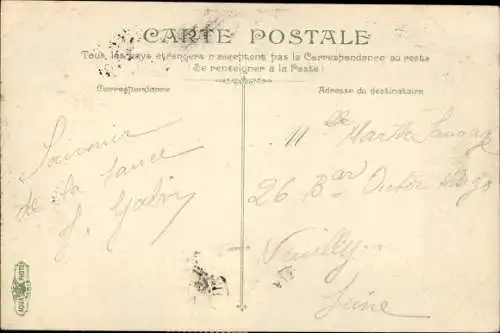 CARTE POSTALE
Tous les pays étrangers n'acceptent pas la Correspondance au recto
(Se renseigner à la Poste)
Correspondance
Adresse du destinataire
Souvenir
de ta
J. Gabry
Mlle Marthe
26 Bar Victor Hugo
Neuilly
Seine
AQUA PHOTO